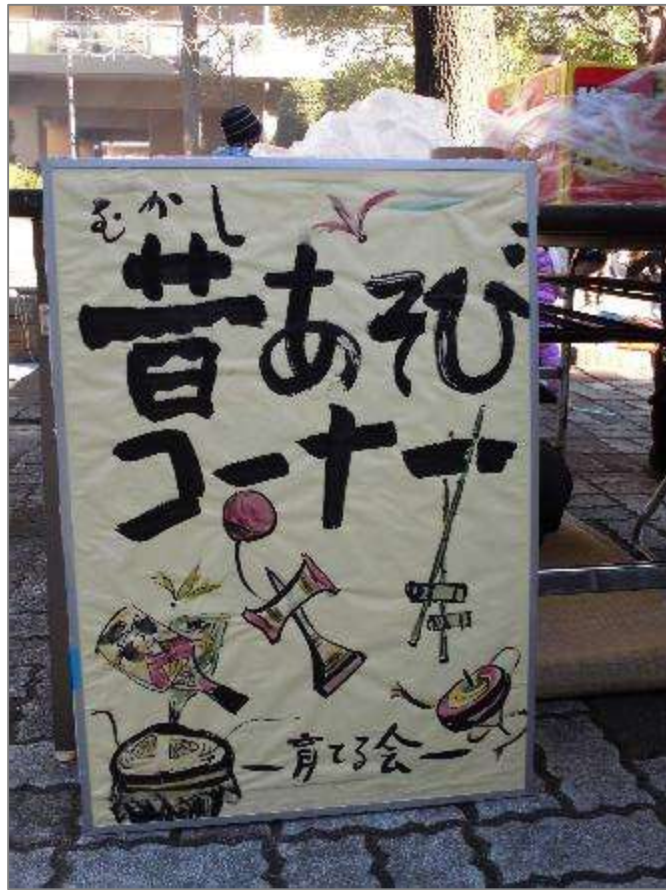 むかし
昔あそび
コーナー
ー育てる会ー